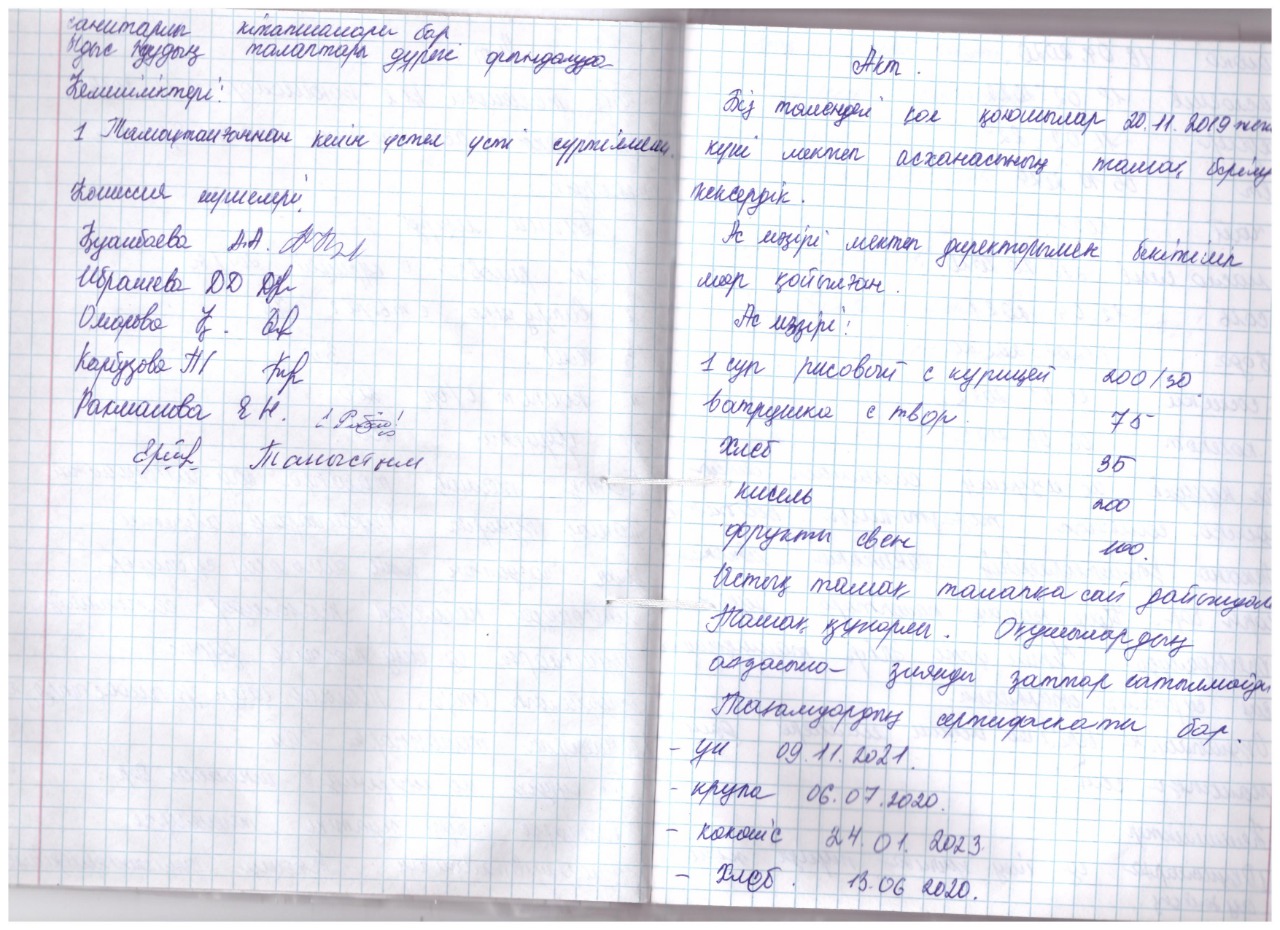 санитарлы кітапшалары бар
Ыдыс жудың талаптары дұрыс орындалуда
Кемшіліктері:
1 Тамақтанғаннан кейін үстел үсті сүртілмеген.
Комиссия мүшелері
Қуанбаева А.А.
Ибрашева ДД
Омарова Қ.
Карбузова Т
Рахмашова Е Н.
Таныстым
Акт.
Біз төмендегі қол қоюшылар 20.11.2019 жылы
күні мектеп асханасының тамақ берілу
тексердік.
Ас мәзірі мектеп директорымен бекітіліп
мөр қойылған.
Ас мәзірі:
1 суп рисовый с курицей 200/30
ватрушка с твор. 75
Хлеб 35
кисель 200
фрукты свеж 100.
Ыстық тамақ талапқа сай дайындал
Тамақ құнарлы. Оқушылардың
ағзасына зиянды заттар сатылмайды
Тағамдардың сертификаты бар.
- ун 09.11.2021.
- крупа 06.07.2020.
- 24.01.2023
- Хлеб. 13.06 2020.